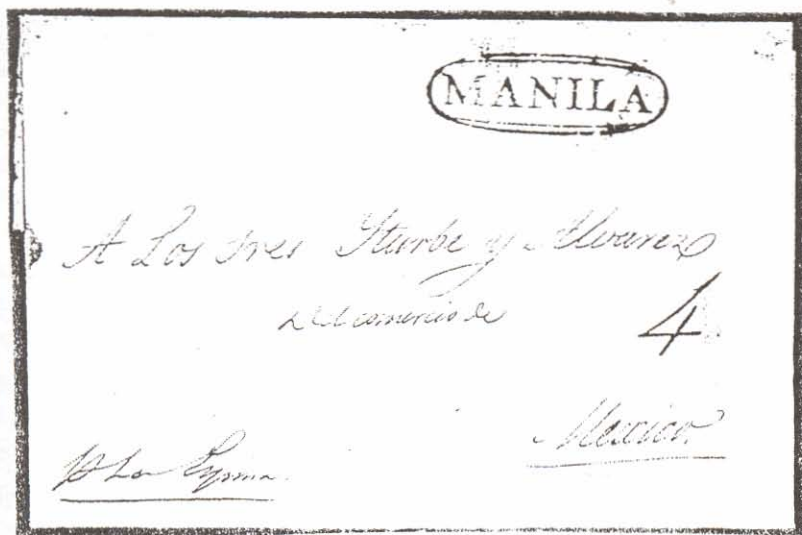 MANILA
A Los Sres Yturbe y Alvarez
del comercio de
4
Mexico.